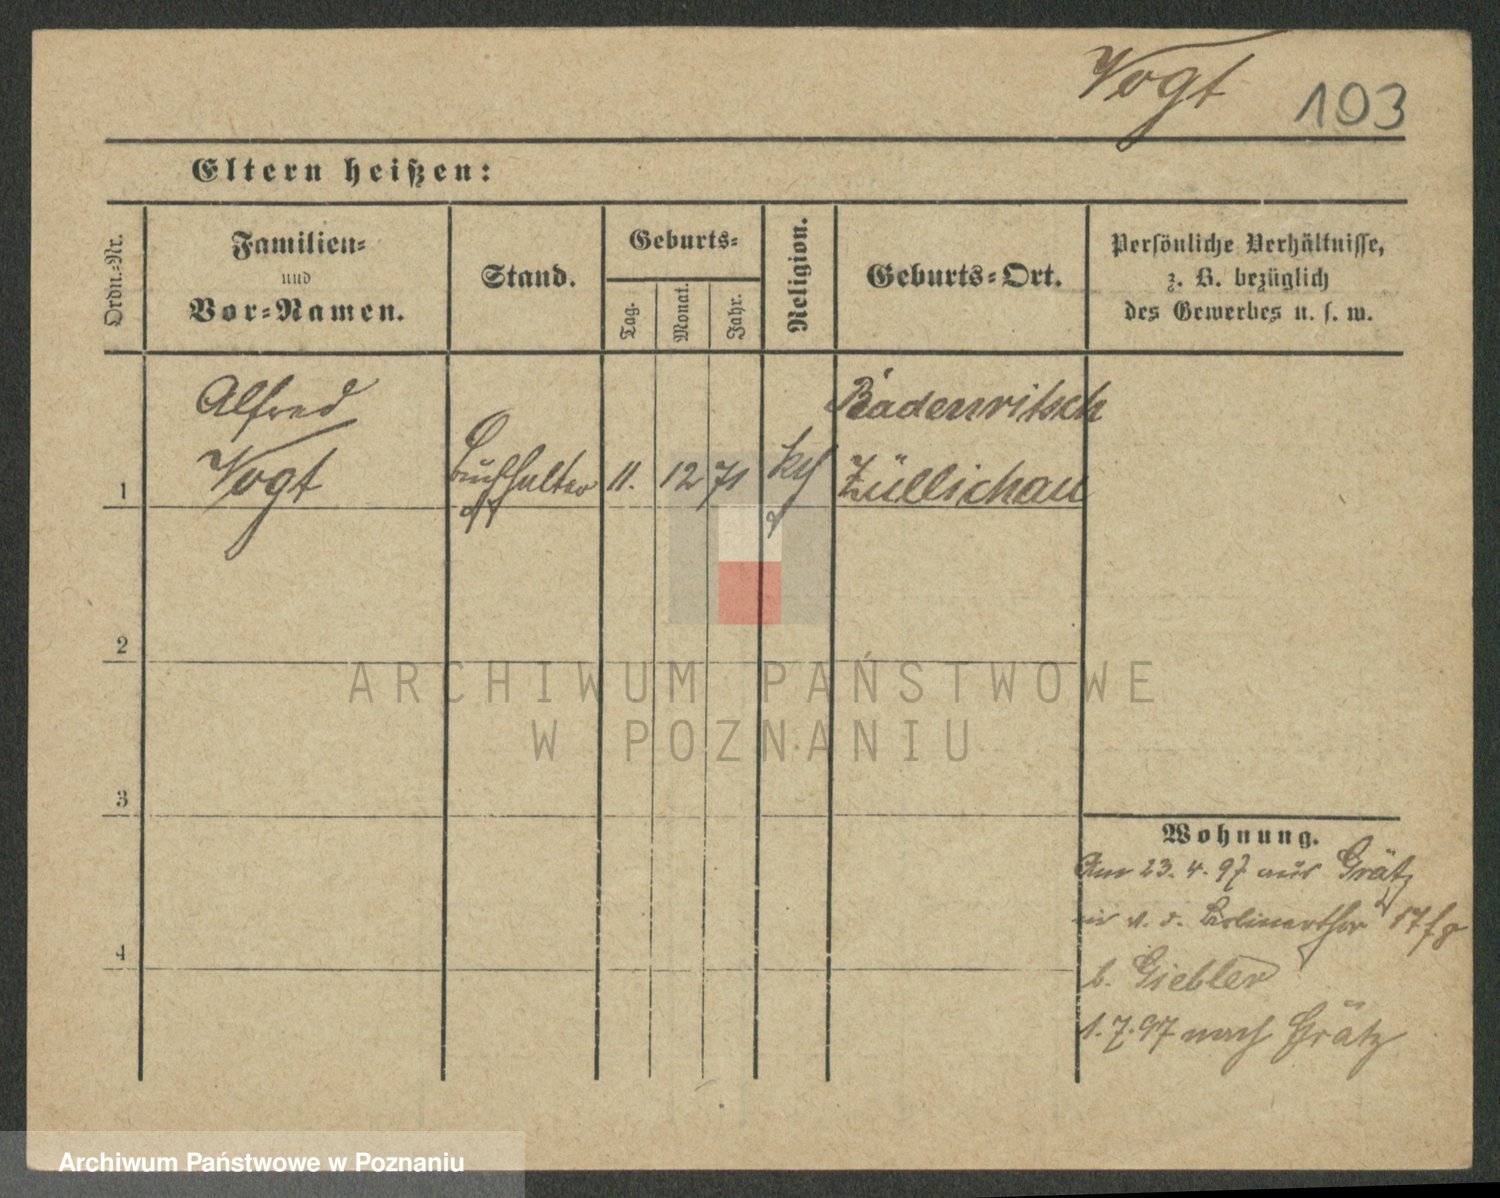 Vogt 193
Eltern heißen:
Ordn.-Nr.
Familien-
und
Vor-Namen.
Stand.
Geburts-
Tag.
Monat.
Jahr.
Religion.
Geburts-Ort.
Persönliche Verhältnisse,
z. B. bezüglich
des Gewerbes u. s. w.
Alfred
Vogt
1
Buchhalter
11. 12 71
kth
Radenritsch
Züllichau
2
3
4
Wohnung.
Am 23. 4. 97 aus Grätz
v. d. Berlinerthor 17
b. Giebler
1. 7. 97 nach Grätz
ARCHIWUM PAŃSTWOWE
W POZNANIU
Archiwum Państwowe w Poznaniu